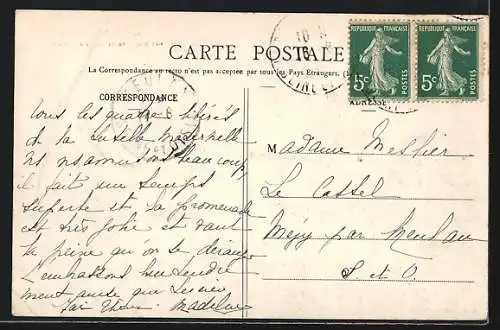 CARTE POSTALE
La Correspondance au recto n'est pas acceptée par tous les Pays Etrangers.
CORRESPONDANCE
ADRESSE
REPUBLIQUE FRANÇAISE
5c
POSTES
REPUBLIQUE FRANÇAISE
5c
POSTES
tous les quatre libérés
de la tutelle maternelle
ns ns amusons beaucoup
il fait un temps
superbe et la promenade
est très jolie et vaut
la peine qu'on se dérange
L'embrassons bien tendre
ment ainsi que
Madeleine
Madame
Le Castel
Mézy par Meulan
S et O.